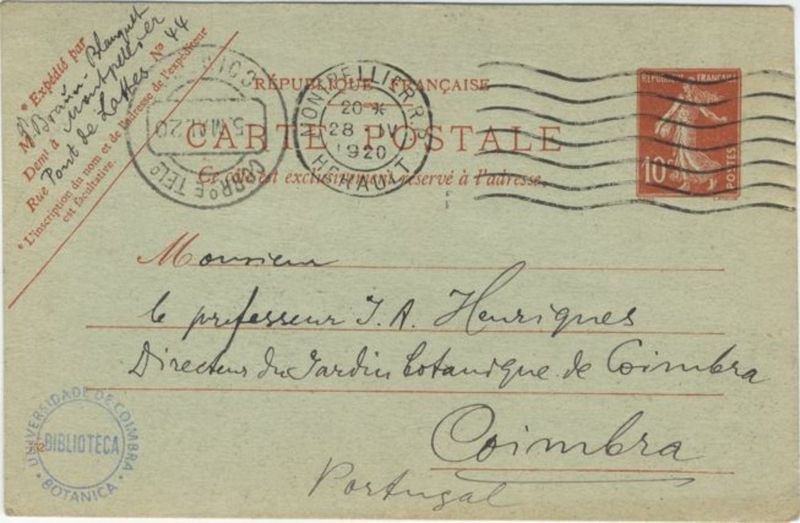 * Expédié par
M J Braun-Blanquet
Demt à Montpellier
Rue Pont de Lattes No 44
* L'inscription du nom et de l'adresse de l'expéditeur
est facultative.
CORR.O E TELO
5.MAI.20
MONTPELLIER R.P.
20 *
28 IV
1920
HERAULT
RÉPUBLIQUE FRANÇAISE
CARTE POSTALE
Ce côté est exclusivement réservé à l'adresse.
REPUBLIQUE FRANÇAISE
10c
POSTES
Monsieur
le professeur J. A. Henriques
Directeur du Jardin botanique de Coimbra
Coimbra
Portugal
UNIVERSIDADE DE COIMBRA
BIBLIOTECA
BOTANICA